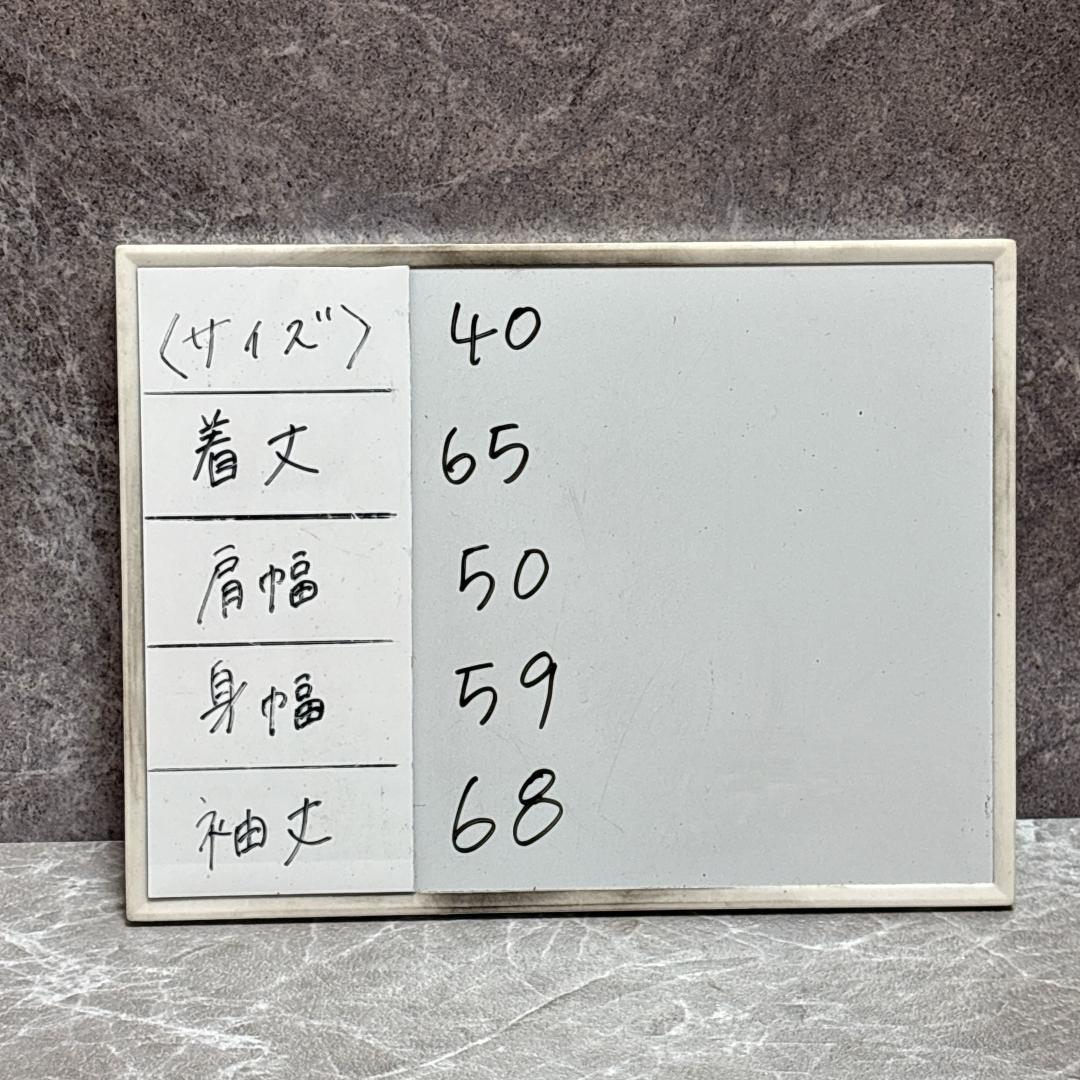 〈サイズ〉 40
着丈 65
肩幅 50
身幅 59
袖丈 68